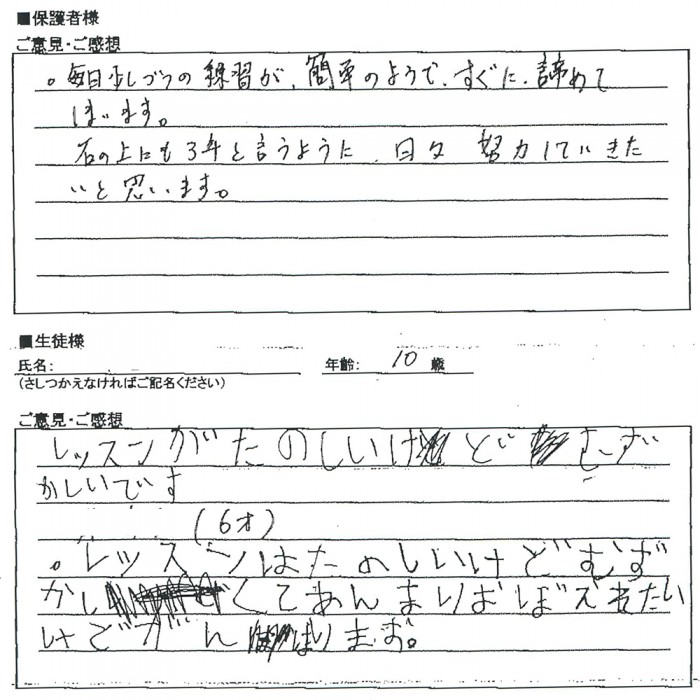 ■保護者様
ご意見・ご感想
。毎日少しづつの練習が、簡単のようで、すぐに、諦めて
しまいます。
石の上にも3年と言うように、日々 努力していきた
いと思います。
■生徒様
氏名:
年齢: 10 歳
(さしつかえなければご記名ください)
ご意見・ご感想
レッスンがたのしいけど むず
かしいです
(6才)
。レッスンはたのしいけどむず
かしくてあんまりおぼえれない
けどがんばります。